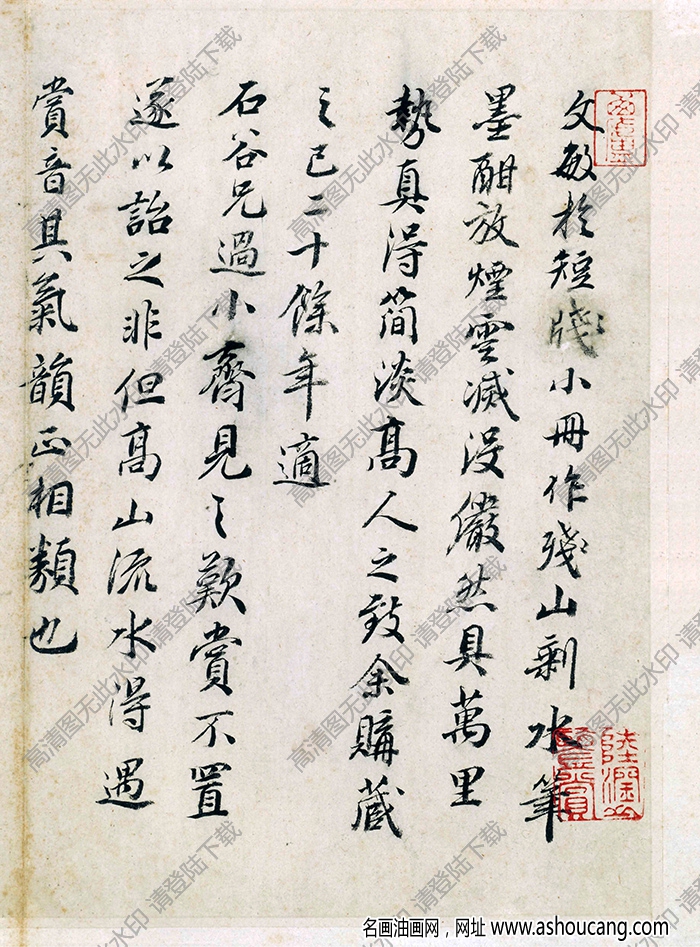 文敏於短牋小冊作殘山剩水筆
墨酣放煙雲滅没儼然具萬里
勢真得簡淡高人之致余購藏
之已二十餘年適
石谷兄過小齋見之歎賞不置
遂以詒之非但高山流水得遇
賞音其氣韻正相類也
高清图无此水印 请登陆下载
名画油画网，网址 www.ashoucang.com